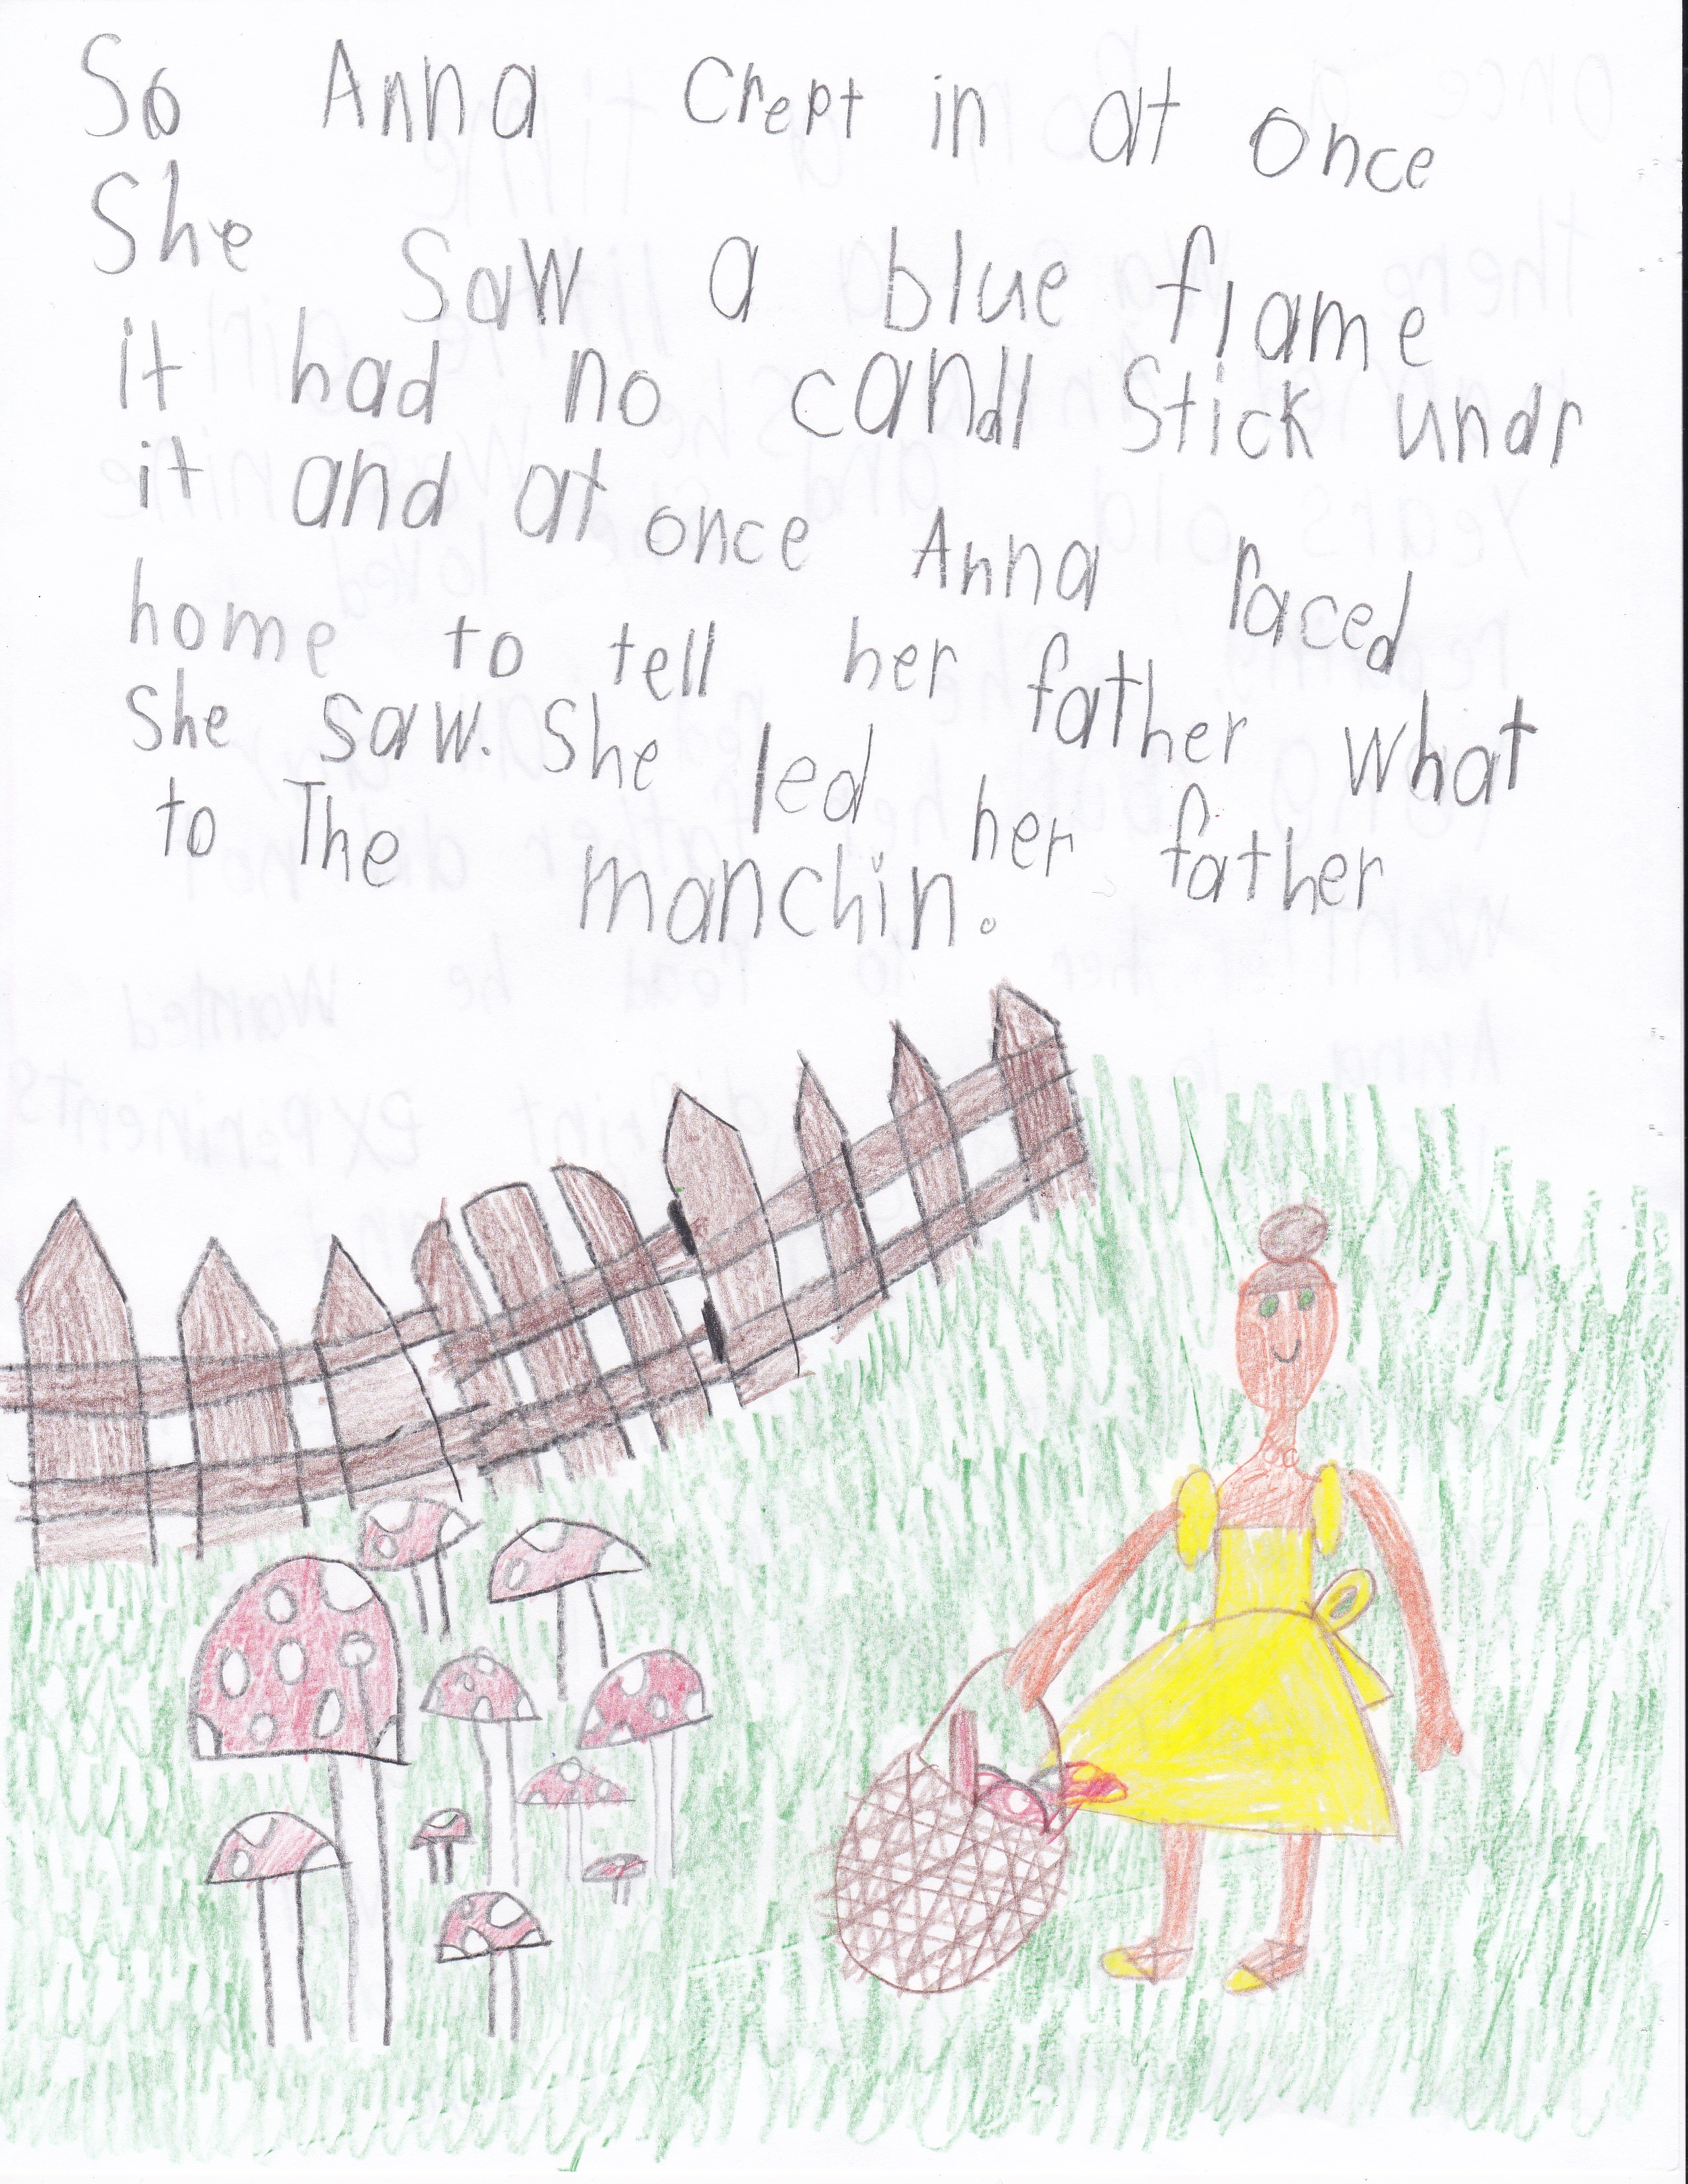 So Anna crept in at once
She saw a blue flame
it had no candl stick undr
it and at once Anna raced
home to tell her father what
she saw. She led her father
to The manchin.